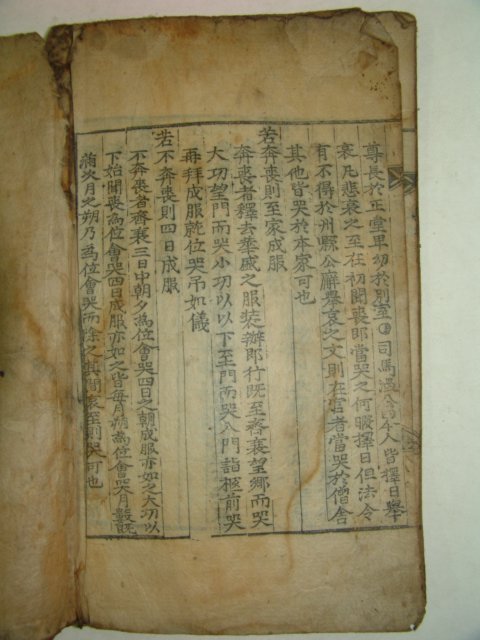 尊長於正堂卑幼於別室◐司馬溫公曰今人皆擇日舉
哀凡悲哀之至在初聞喪即當哭之何暇擇日但法令
有不得於州縣公廨擧哀之文則在官者當哭於僧舍
其他皆哭於本家可也
若奔喪則至家成服
奔喪者釋去華盛之服裝辦即行旣至齊衰望鄕而哭
大功望門而哭小功以以下至門而哭入門詣柩前哭
再拜成服就位哭吊如儀
若不奔喪則四日成服
不奔喪者齊衰三日中朝夕爲位會哭四日之朝成服亦如之大功以
下始聞喪爲位會哭四日成服亦如之皆每月朔爲位會哭月數旣
滿次月之朔乃爲位會哭而除之其間哀至則哭可也